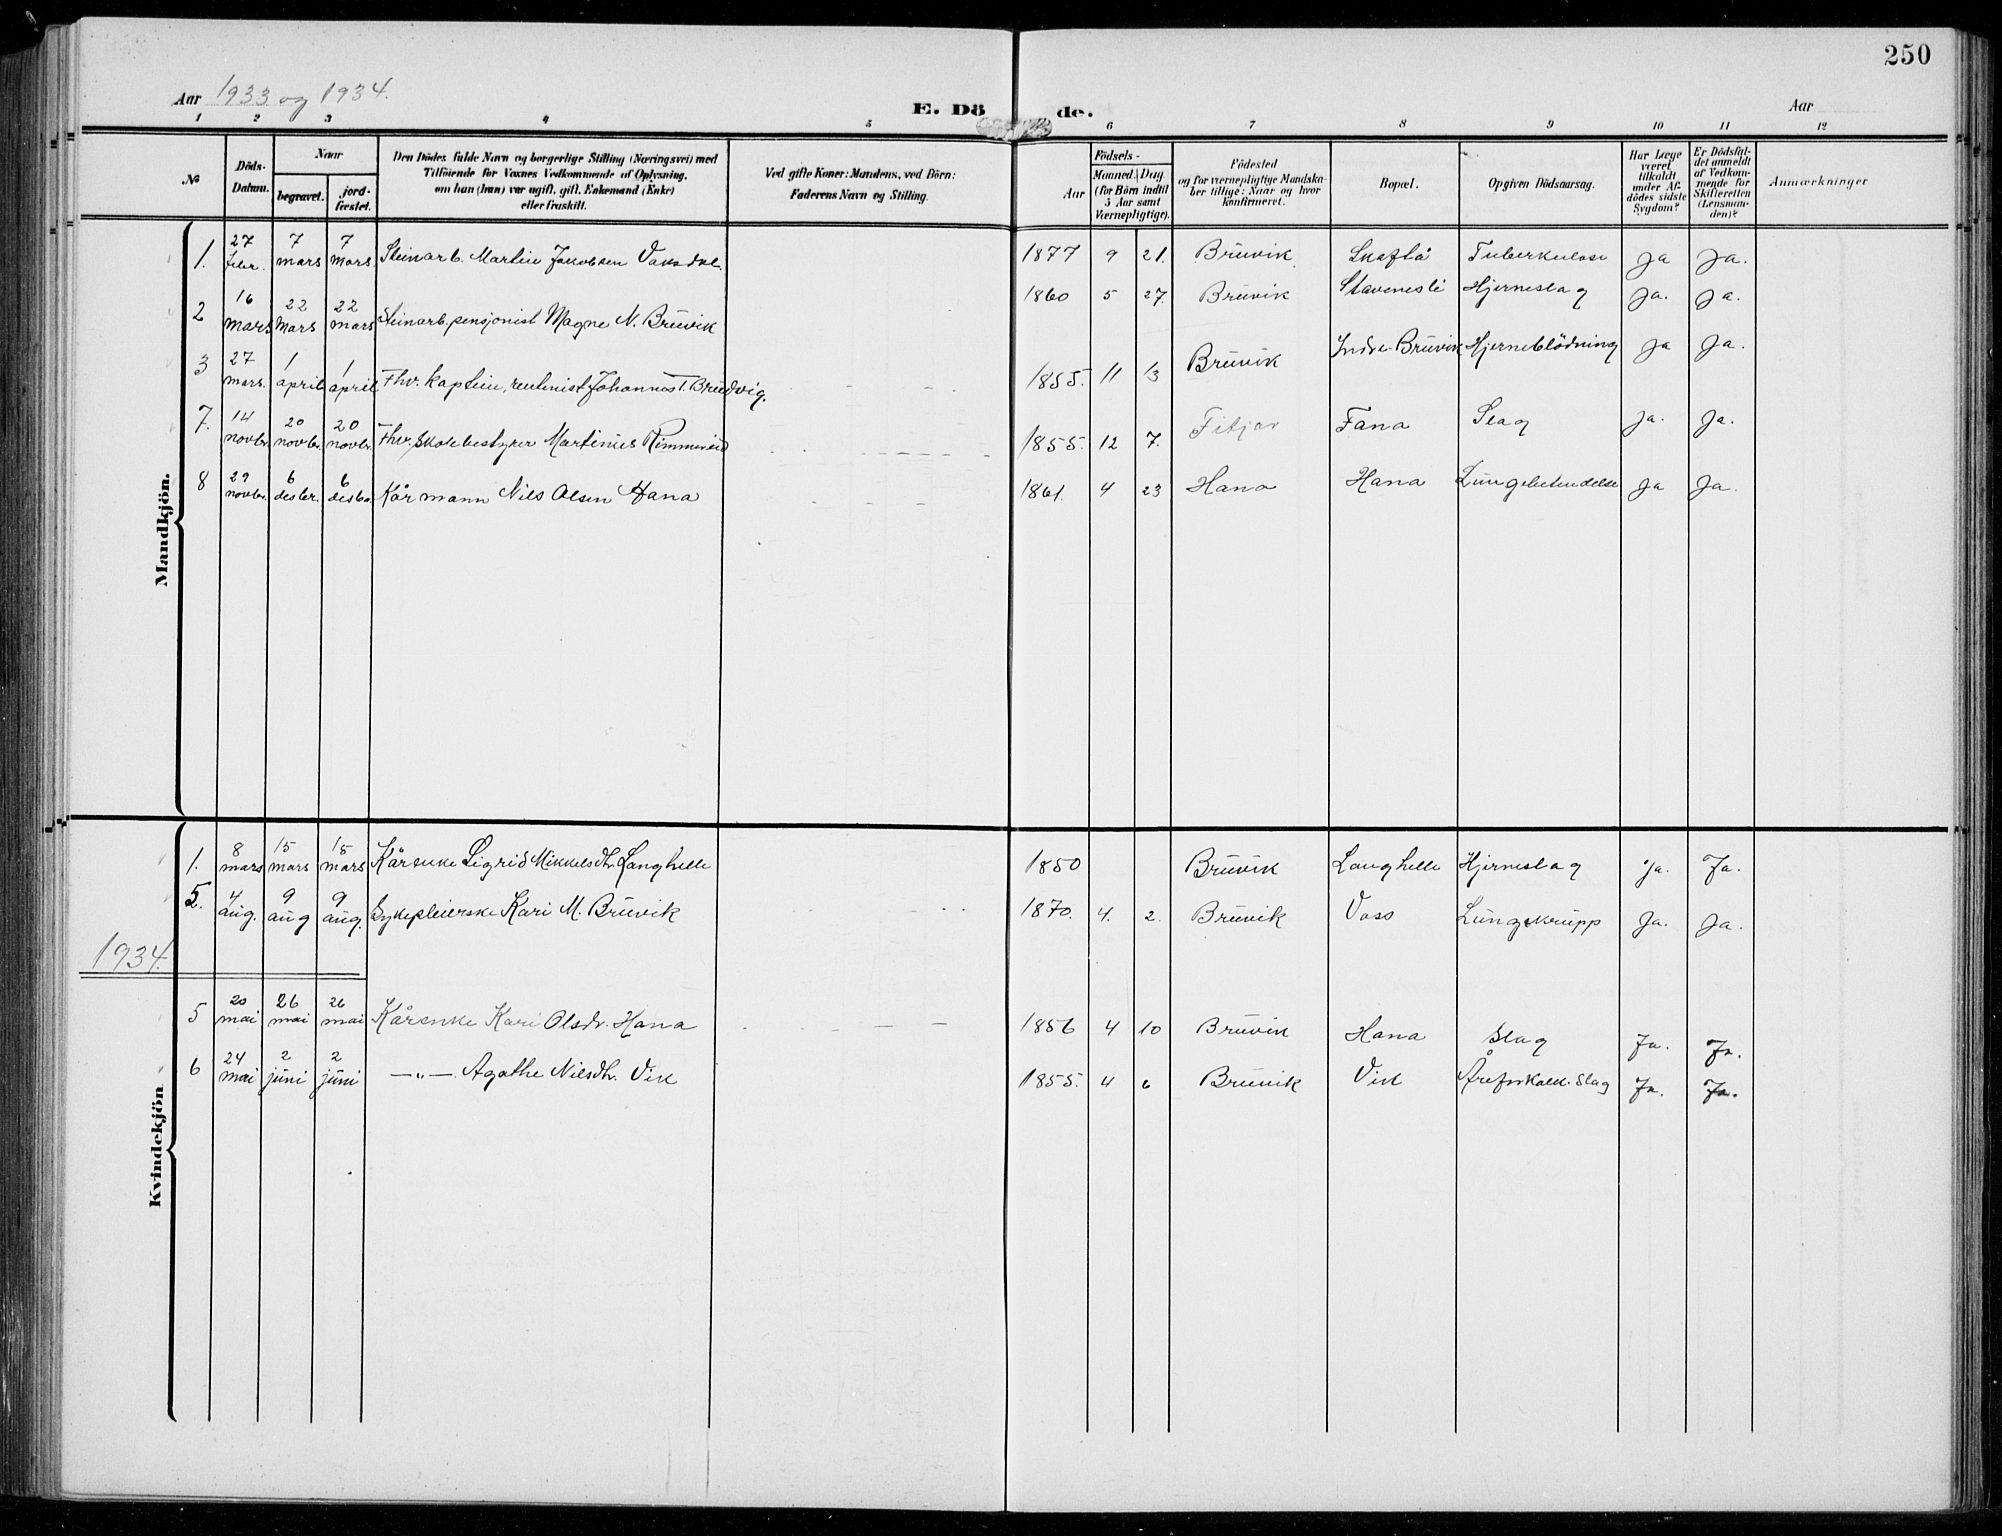 250
Aar 1933 og 1934.
E. Dö de.
Aar
1 2 3 4 5 6 7 8 9 10 11 12
No
Döds-Datum.
Naar
begravet.
jord-fæstet.
Den Dödes fulde Navn og borgerlige Stilling (Næringsvei) med
Tilföiende for Voxnes Vedkommende af Oplysning,
om han (hun) var ugift, gift, Enkemand (Enke)
eller fraskilt.
Ved gifte Koner: Mandens, ved Börn:
Faderens Navn og Stilling.
Födsels-
Aar
Maaned. Dag
(for Börn indtil
5 Aar samt
Værnepligtige).
Födested
og for værnepligtige Mandska-
ber tillige: Naar og hvor
konfirmeret.
Bopæl.
Opgiven Dödsaarsag.
Har Læge
været
tilkaldt
under Af-
dödes sidste
Sygdom?
Er Dödsfal-
det anmeldt
af Vedkom-
mende for
Skifteretten
(Lensman-
den)?
Anmærkninger
Mandkjön.
1. 27 febr. 7 mars 7 mars Steinarb. Martin Jakobsen Vaksdal. 1877 9 21. Bruvik Skaftå Tuberkulose Ja Ja.
2 16 mars 22 mars 22 mars Steinarb. pensjonist Magne N. Bruvik 1860 5 27. Bruvik Stavenesli Hjerneslag Ja. Ja.
3 27 mars. 1 april 1 april Fhv. kaptein, rentenist Johannes I. Brudvig. 1855. 11 13 Bruvik Indre Bruvik Hjerneblödning Ja Ja.
7. 14 novbr. 20 novbr. 20 novbr. Fhv. skolebestyrer Martinus Rimmereid 1855. 12 7. Fitjar Fana Slag Ja. Ja.
8 29 novbr. 6 desbr. 6 desbr. Kårmann Nils Olsen Hana 1861. 4 23 Hana Hana Lungebetendelse Ja Ja.
Kvindekjön
1. 8 mars 15 mars 15 mars Kårenke Sigrid Mikkelsdtr. Langhelle 1850 Bruvik Langhelle Hjerneslag Ja. Ja.
5. 4 aug. 9 aug 9 aug. Sykepleierske Kari M. Bruvik 1870. 4. 2. Bruvik Voss Lungekrupp Ja. Ja.
1934.
5 20 mai 26 mai 26 mai Kårenke Kari Olsdr. Hana 1856 4 10 Bruvik Hana Slag Ja. Ja.
6 24 mai 2 juni 2 juni —"— Agathe Nilsdtr. Vik 1855. 4 6 Bruvik Vik Årefrskalk. Slag Ja. Ja.